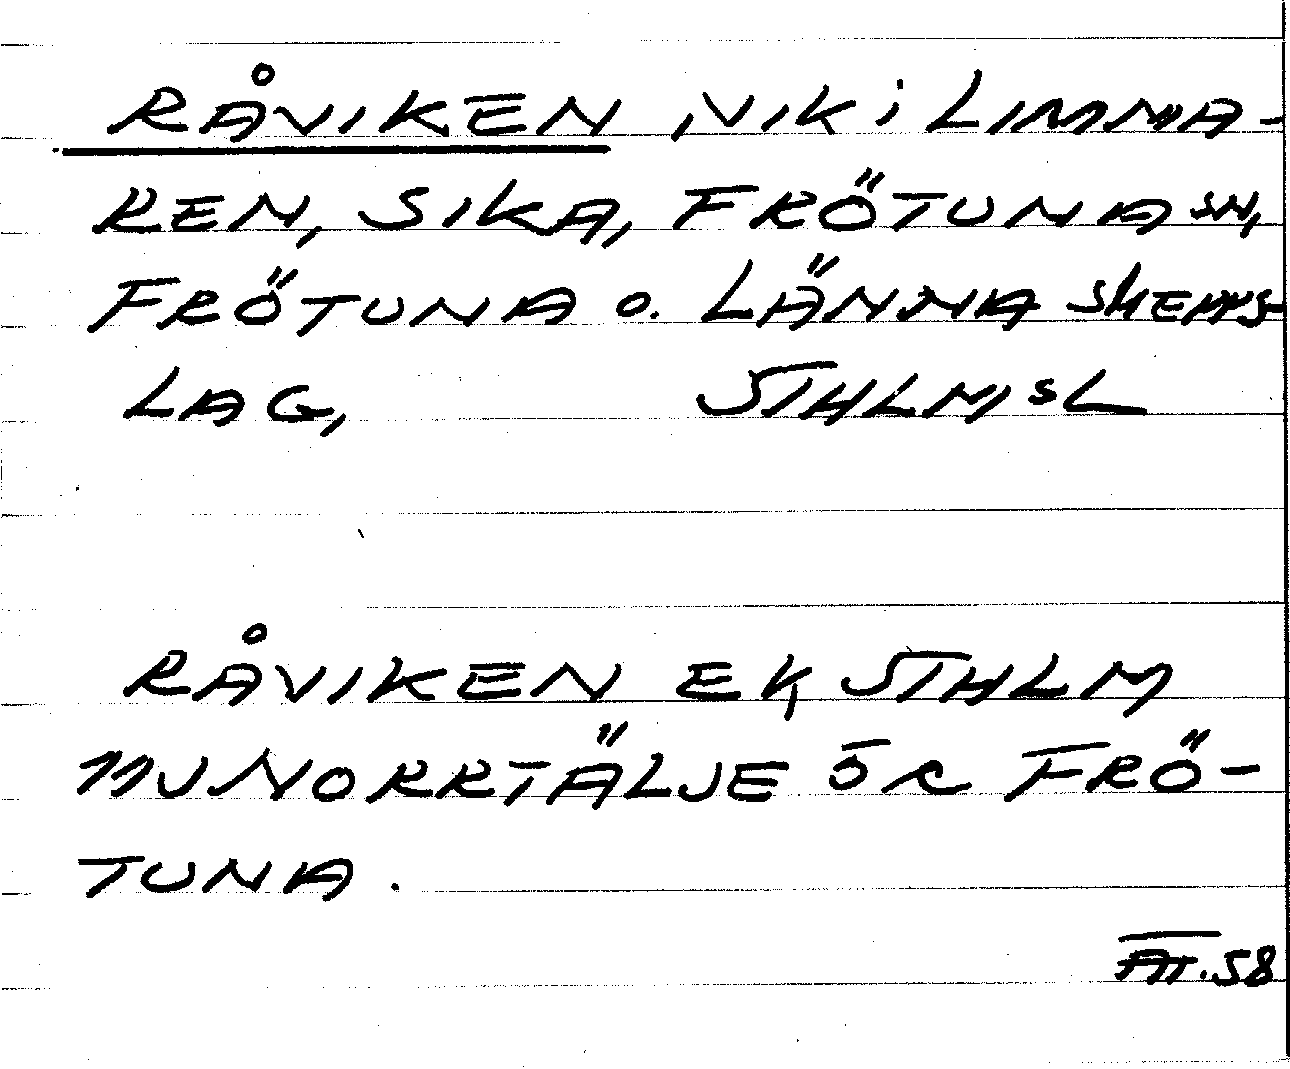 RÅVIKEN, VIK i LIMMA-
REN, SIKA, FRÖTUNA SN,
FRÖTUNA o. LÄNNA SKEPPS-
LAG, STHLMS L
RÅVIKEN EK STHLM
11J NORRTÄLJE 5 c FRÖ-
TUNA.
FAT. 58